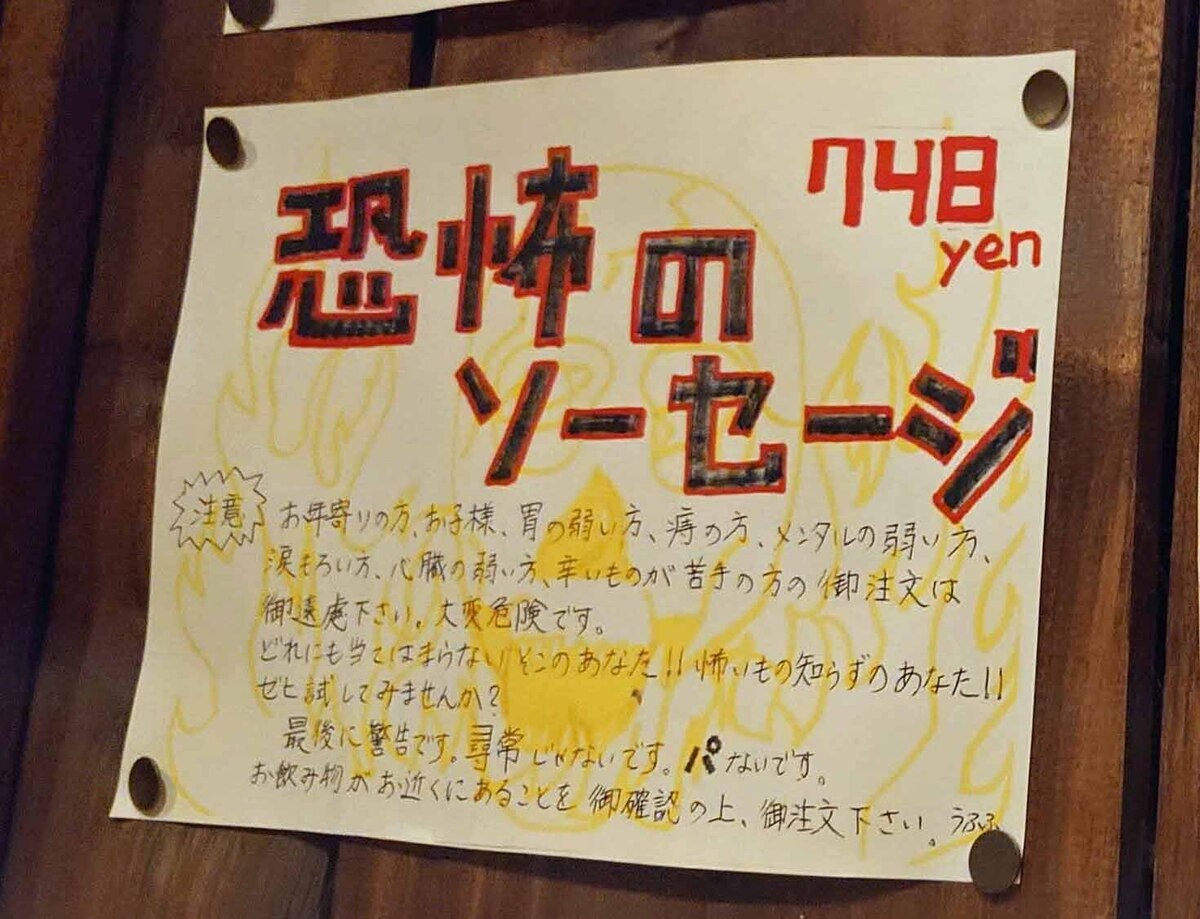 恐怖の
748
yen
ソーセージ
注意
お年寄りの方、お子様、胃の弱い方、痔の方、メンタルの弱い方、
涙もろい方、心臓の弱い方、辛いものが苦手の方の御注文は
御遠慮下さい。大変危険です。
どれにも当てはまらないそこのあなた!!怖いもの知らずのあなた!!
ぜひ試してみませんか?
最後に警告です。尋常じゃないです。パないです。
お飲み物がお近くにあることを御確認の上、御注文下さい。うふふ